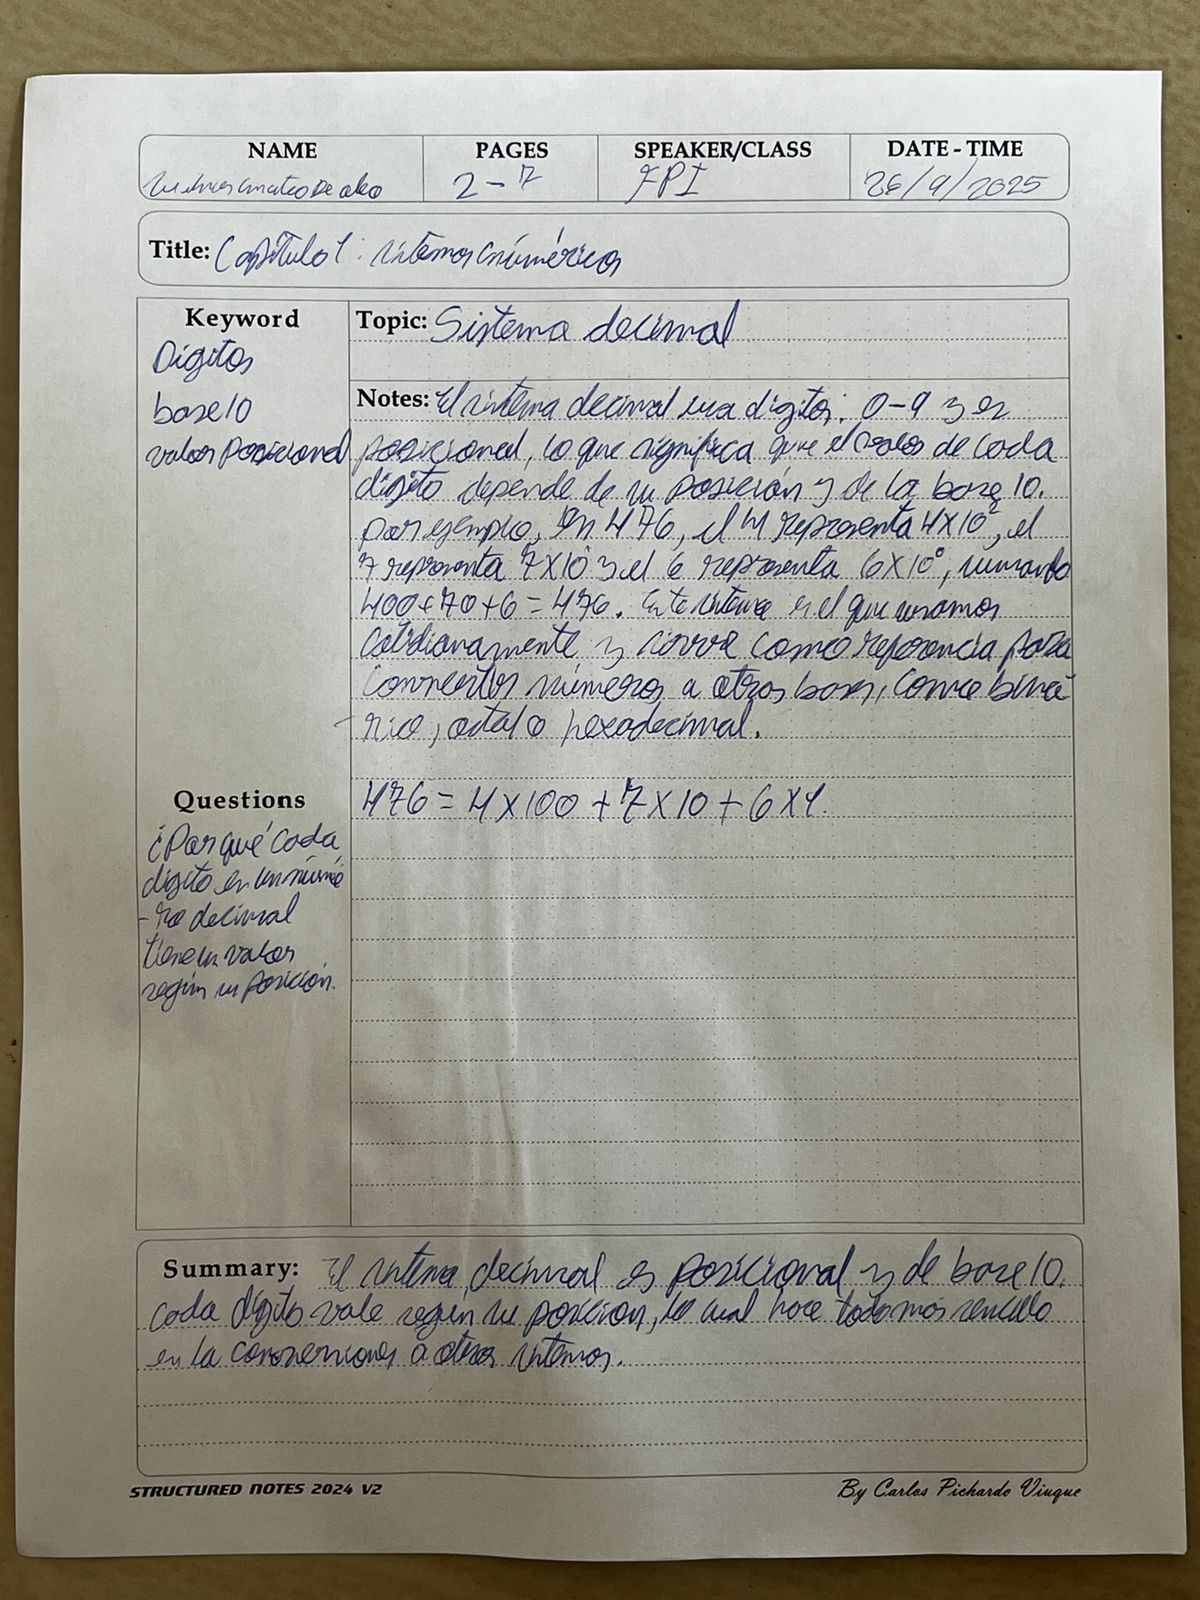 NAME PAGES SPEAKER/CLASS DATE - TIME
2-7 FPI 26/9/2025
Title: Capítulo 1: sistemas numéricos
Keyword
Dígitos
base 10
valor posicional
Topic: Sistema decimal
Notes: El sistema decimal usa dígitos: 0-9 y es
posicional, lo que significa que el valor de cada
dígito depende de su posición y de la base 10.
por ejemplo, en 476, el 4 representa 4X10², el
7 representa 7X10 y el 6 representa 6X10⁰, sumando
400+70+6=476. Este sistema es el que usamos
cotidianamente y sirve como referencia para
convertir números a otras bases, como biná-
rio, octal o hexadecimal.
476 = 4 X 100 + 7 X 10 + 6 X 1.
Questions
¿Por qué cada
dígito en un núme
-ro decimal
tiene un valor
según su posición.
Summary: El sistema decimal es posicional y de base 10.
cada dígito vale según su posición, lo cual hace todo más sencillo
en la conversiones a otros sistemas.
STRUCTURED NOTES 2024 V2
By Carlos Pichardo Viuque